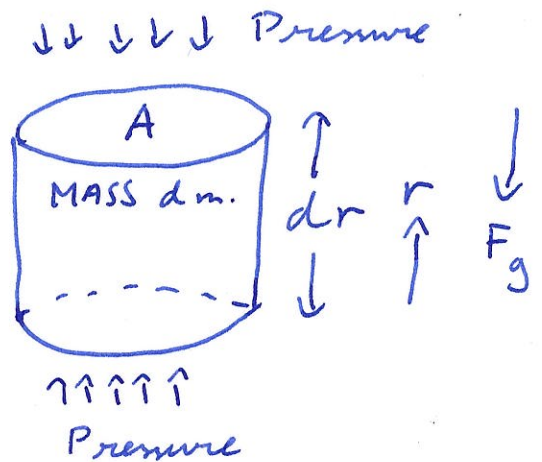 Pressure
A
MASS dm.
dr
r
Fg
Pressure